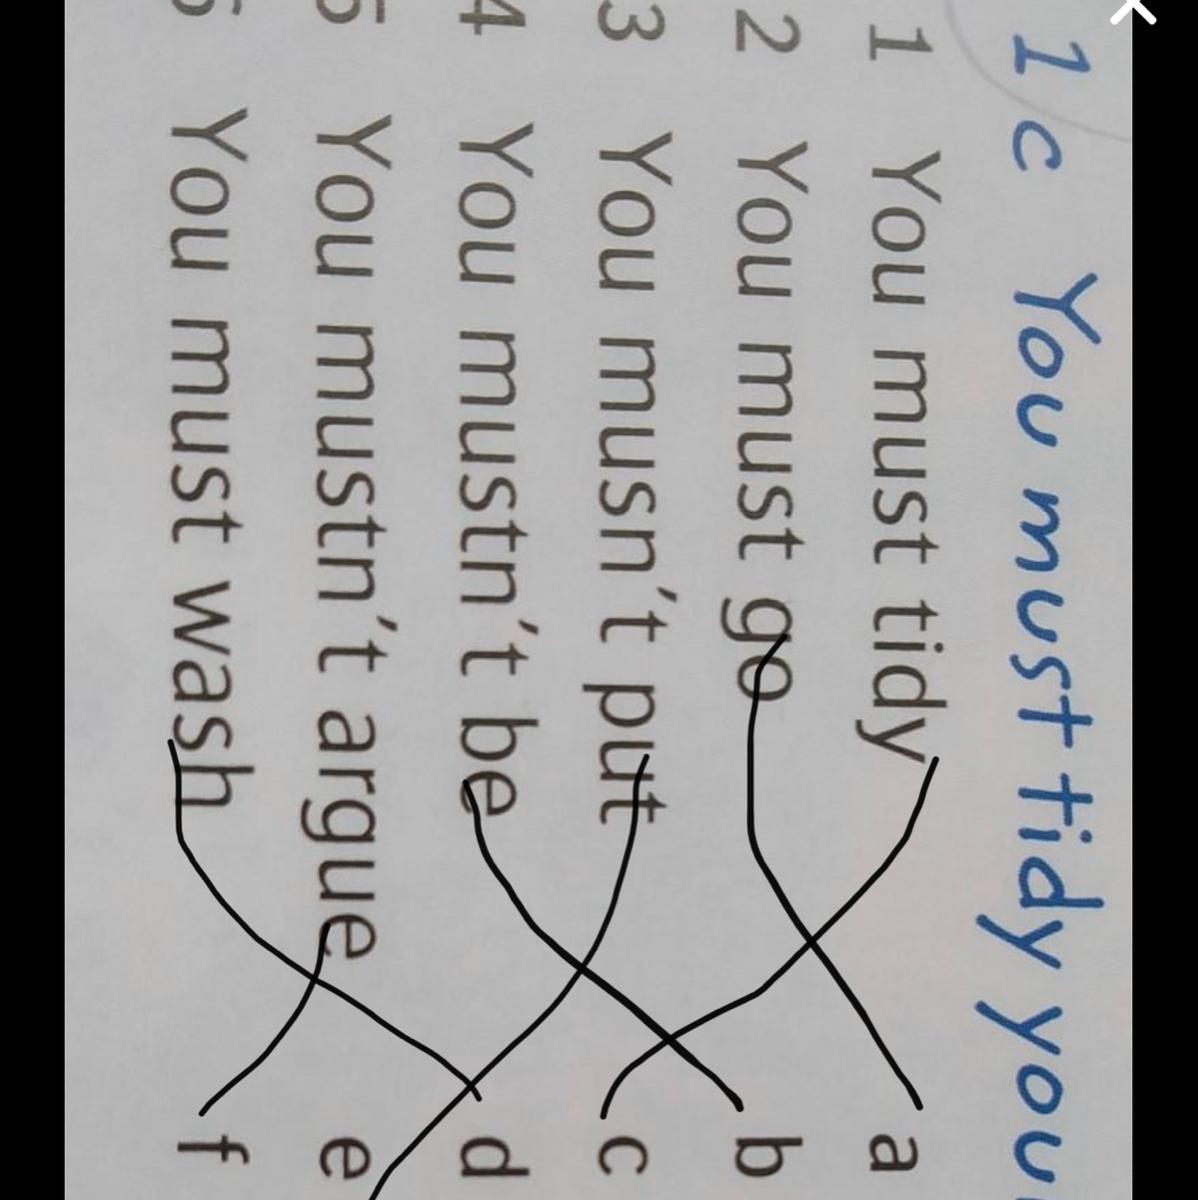 1 c You must tidy you
1 You must tidy a
2 You must go b
3 You musn't put c
4 You mustn't be d
5 You mustn't argue e
6 You must wash f